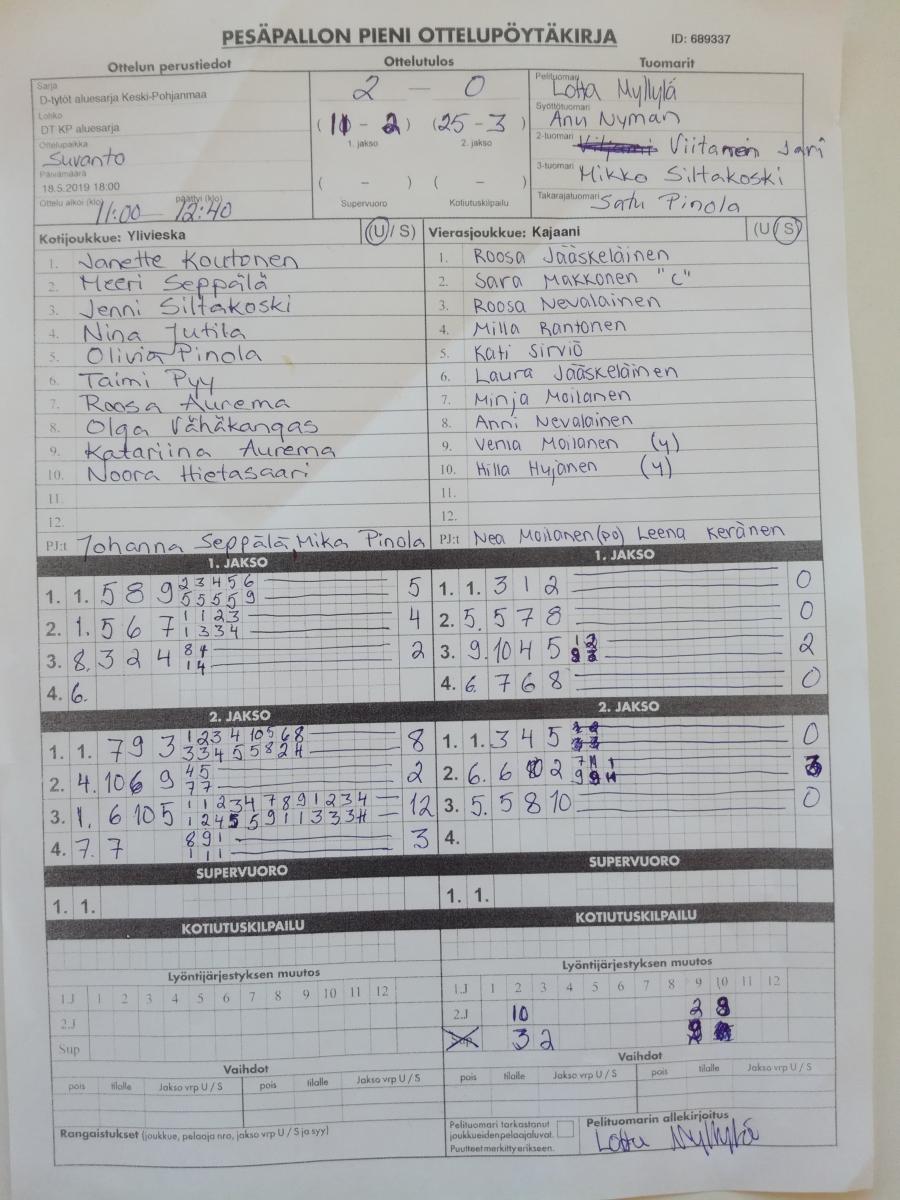 PESÄPALLON PIENI OTTELUPÖYTÄKIRJA ID: 689337
Ottelun perustiedot Ottelutulos Tuomarit
Sarja
D-tytöt aluesarja Keski-Pohjanmaa
Lohko
DT KP aluesarja
Ottelupaikka
Suvanto
Päivämäärä
18.5.2019 18:00
Ottelu alkoi (klo) päättyi (klo)
11:00 12:40
2 — 0
(11 - 2) (25 - 3)
1. jakso 2. jakso
( - ) ( - )
Supervuoro Kotiutuskilpailu
Pelituomari Lotta Myllylä
Syöttötuomari Anu Nyman
2-tuomari Viitanen Jari
3-tuomari Mikko Siltakoski
Takarajatuomari Satu Pinola
Kotijoukkue: Ylivieska (U / S)
1. Janette Koutonen
2. Meeri Seppälä
3. Jenni Siltakoski
4. Nina Jutila
5. Olivia Pinola
6. Taimi Pyy
7. Roosa Aurema
8. Olga Vähäkangas
9. Katariina Aurema
10. Noora Hietasaari
11.
12.
PJ:t Johanna Seppälä, Mika Pinola
Vierasjoukkue: Kajaani (U / S)
1. Roosa Jääskeläinen
2. Sara Makkonen "C"
3. Roosa Nevalainen
4. Milla Rantonen
5. Kati Sirviö
6. Laura Jääskeläinen
7. Minja Moilanen
8. Anni Nevalainen
9. Venla Moilanen (4)
10. Hilla Hyjänen (4)
11.
12.
PJ:t Nea Moilanen (po) Leena Keränen
1. JAKSO
1. 1. 5 8 9 2 3 4 5 6 5
5 5 5 5 9
2. 1. 5 6 7 1 1 2 3 4
1 3 3 4
3. 8. 3 2 4 8 4 2
1 4
4. 6.
1. JAKSO
1. 1. 3 1 2 0
2. 5. 5 7 8 0
3. 9. 10 4 5 1 2 2
4. 6. 7 6 8 0
2. JAKSO
1. 1. 7 9 3 1 2 3 4 10 5 6 8 8
3 3 4 5 5 8 2 4
2. 4. 10 6 9 4 5 2
7 7
3. 1. 6 10 5 1 1 2 3 4 7 8 9 1 2 3 4 12
1 2 4 5 5 9 1 1 3 3 3 4
4. 7. 7 8 9 1 3
1 1 1
2. JAKSO
1. 1. 3 4 5 0
2. 6. 6 2 3
3. 5. 5 8 10 0
4.
SUPERVUORO
1. 1.
SUPERVUORO
1. 1.
KOTIUTUSKILPAILU
KOTIUTUSKILPAILU
Lyöntijärjestyksen muutos
1.J 1 2 3 4 5 6 7 8 9 10 11 12
2.J
Sup
Lyöntijärjestyksen muutos
1.J 1 2 3 4 5 6 7 8 9 10 11 12
2.J 10 2 8
Sup 3 2 9
Vaihdot
pois tilalle Jakso vrp U / S pois tilalle Jakso vrp U / S
Vaihdot
pois tilalle Jakso vrp U / S pois tilalle Jakso vrp U / S
Rangaistukset (joukkue, pelaaja nro, jakso vrp U / S ja syy)
Pelituomari tarkastanut
joukkueiden pelaajaluvat.
Puutteet merkitty erikseen.
Pelituomarin allekirjoitus
Lotta Myllylä